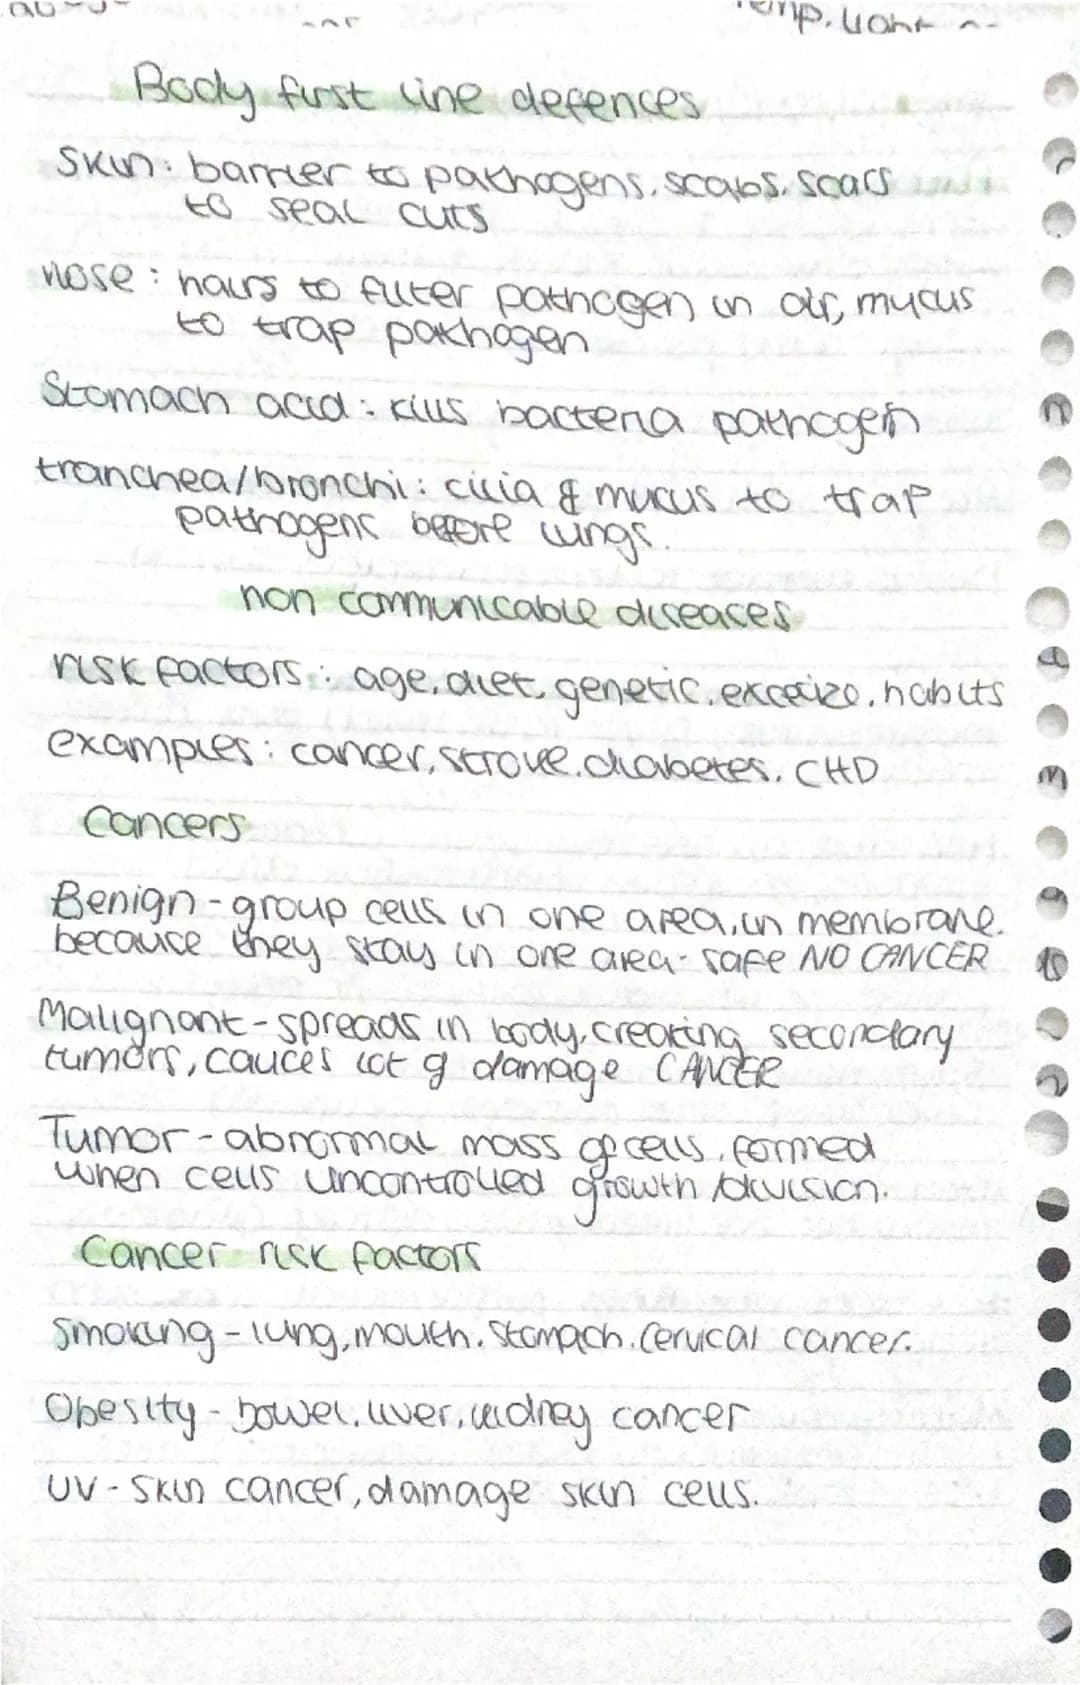 Temp. light
Body first line defences
Skin: barrier to pathogens. scabs. scars
to seal cuts
nose: hairs to filter pathogen in air, mucus
to trap pathogen
Stomach acid: kills bacteria pathogen
tranchea/bronchi: cilia & mucus to trap
pathogens before lungs.
non communicable diseases
risk factors: age. diet. genetic. excerize. habits
examples: cancer, stroke. diabetes. CHD
Cancers
Benign - group cells in one area, in membrane.
because they stay in one area - safe NO CANCER
Malignant - spreads in body, creating secondary
tumors, causes lot of damage CANCER
Tumor - abnormal mass of cells. formed
when cells uncontrolled growth/division.
Cancer risk factors
Smoking - lung, mouth. stomach. Cervical cancer.
Obesity - bowel. liver, kidney cancer
UV - skin cancer, damage skin cells.